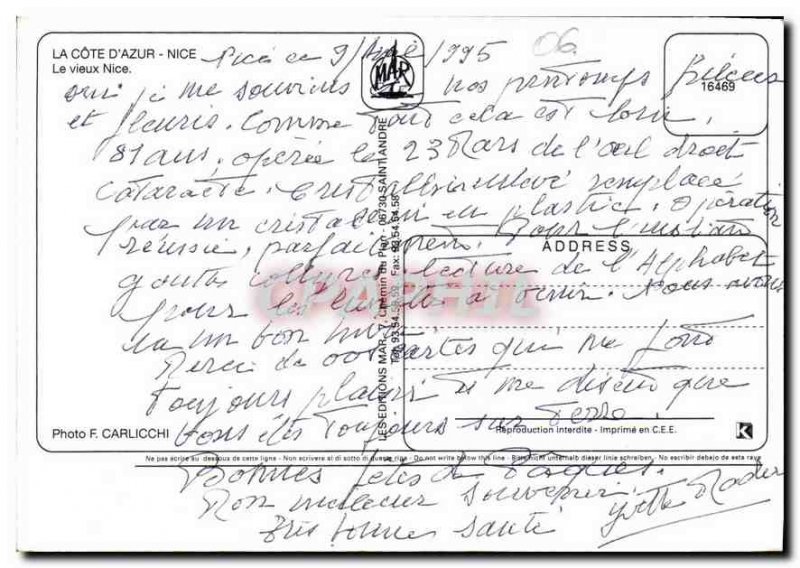 LA CÔTE D'AZUR - NICE
Le vieux Nice.
Nice ce 9/ 1995
06
MAR
16469
oui je me souviens nos printemps
et fleuris. Comme tout cela est loin.
81 ans, opérée le 23 Mars de l'oeil droit
cataracte. Cristallin enlevé remplacé
par un cristallin en plastic. Opération
réussie, parfaitement. Pour l'instant
ADDRESS
gouttes collyres lecture de l'Alphabet
pour les à venir. Nous avons
eu un bon hiver
Merci de vos cartes qui me font
Toujours plaisir et me disent que
vous êtes Toujours sur Terre.
LES EDITIONS MAR - 7, Chemin du Plan - 06730 SAINT ANDRE
Tél. 93.54.59.59 Fax: 93.54.54.58
CPAPHIL
Photo F. CARLICCHI
Reproduction interdite - Imprimé en C.E.E.
K
Ne pas écrire au dessous de cette ligne - Non scrivere si di sotto di questa linea - Do not write below this line - Bitte nicht unter dieser linie schreiben. - No escribir debajo de esta raya
Bonnes fêtes de Pâques.
Mon meilleur souvenir.
Très bonne santé
Yvette